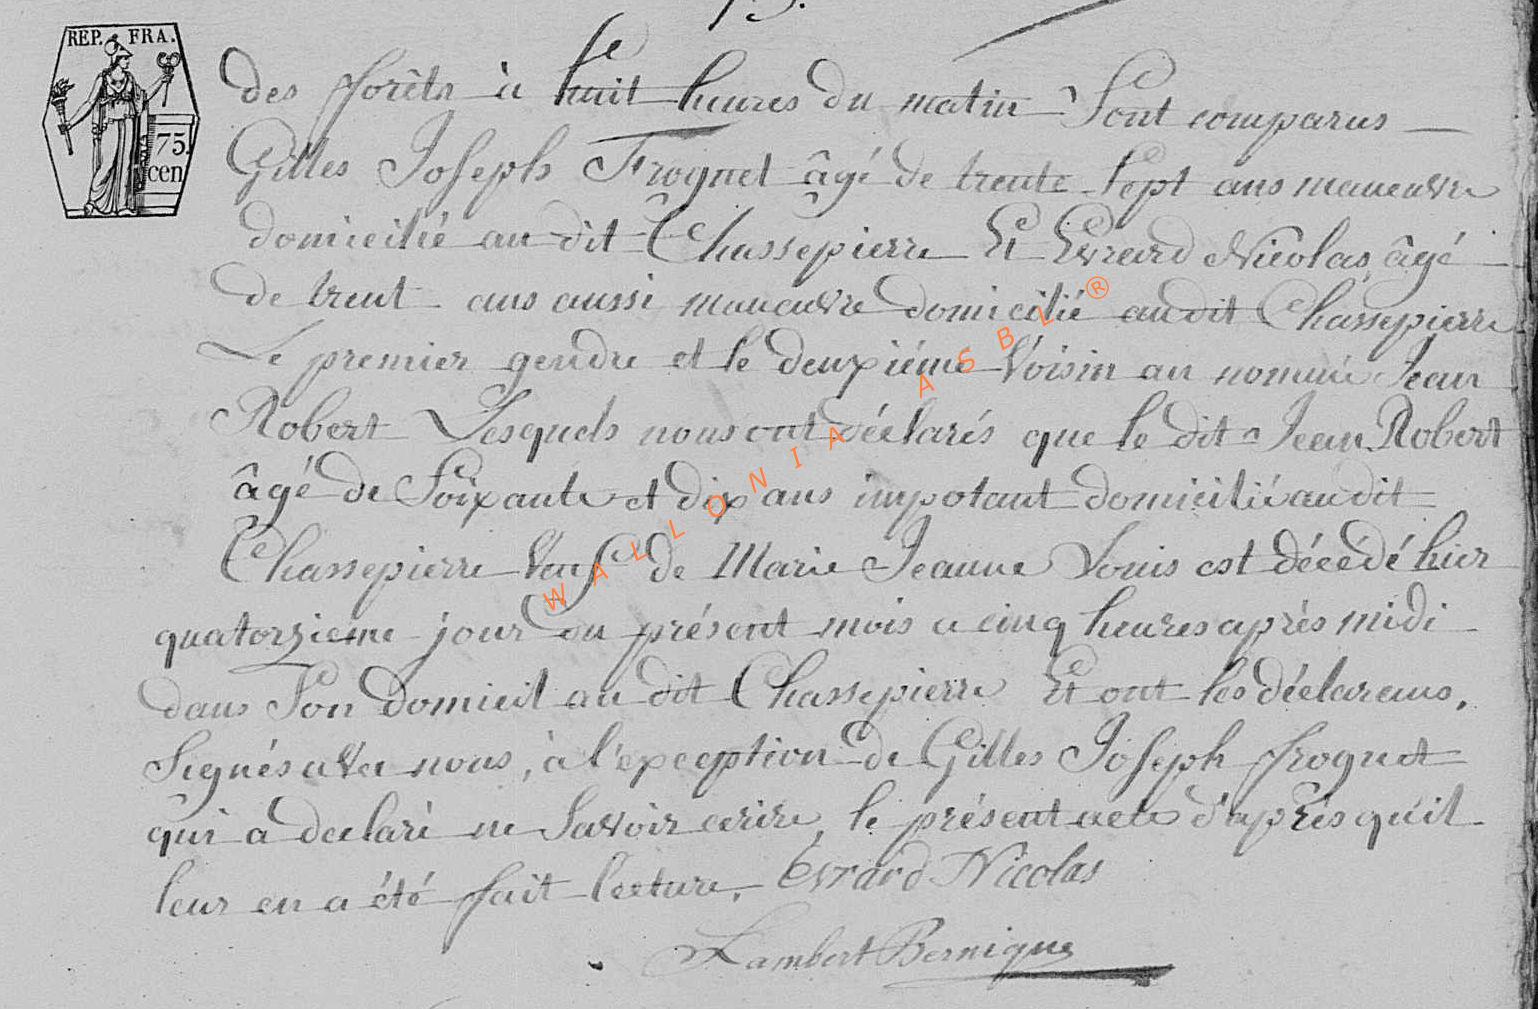 REP. FRA.
75.
cen
des forêts à huit heures du matin Sont comparus
Gilles Joseph Frognet âgé de trente Sept ans maneuvre
domicilié au dit Chassepierre Et Evrard Nicolas âgé
de trent ans aussi maneuvre domicilié audit Chassepierre
Le premier gendre et le deuxiéme Voisin au nommé Jean
Robert Lesquels nous ont déclarés que le dit Jean Robert
âgé de Soixante et dix ans impotant domicilié audit
Chassepierre Veuf de Marie Jeanne Louis est décédé hier
quatorzieme jour du présent mois a cinq heures après midi
dans Son domicil au dit Chassepierre Et ont les déclarans,
Signés avec nous, à l'exception de Gilles Joseph frognet
qui a declaré ne Savoir ecrire, le présent acte d'après qu'il
leur en a été fait lecture. Evrard Nicolas
Lambert Bernique
WALLONIA ASBL ®